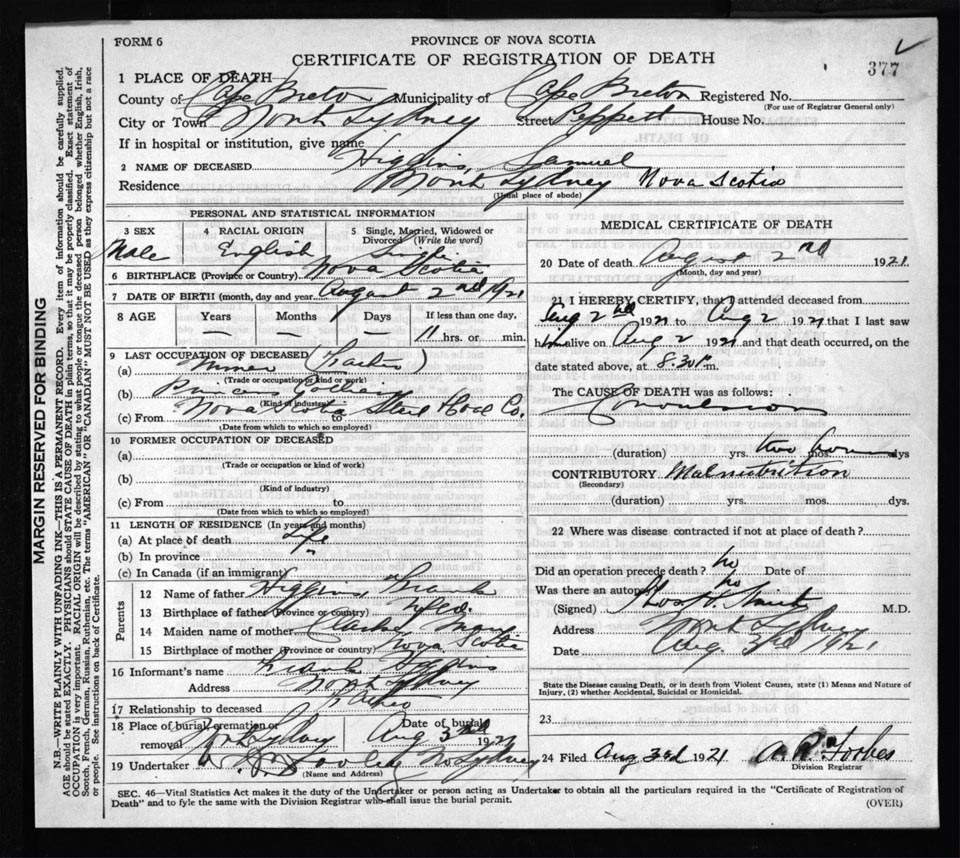 FORM 6
PROVINCE OF NOVA SCOTIA
CERTIFICATE OF REGISTRATION OF DEATH
377
1 PLACE OF DEATH
County of Cape Breton Municipality of Cape Breton Registered No.
(For use of Registrar General only)
City or Town North Sydney Street Peppett House No.
If in hospital or institution, give name
2 NAME OF DECEASED Higgins, Samuel
Residence North Sydney Nova Scotia
(Usual place of abode)
PERSONAL AND STATISTICAL INFORMATION
3 SEX
Male
4 RACIAL ORIGIN
English
5 Single, Married, Widowed or
Divorced (Write the word)
Single
6 BIRTHPLACE (Province or Country) Nova Scotia
7 DATE OF BIRTH (month, day and year) August 2nd 1921
8 AGE Years Months Days If less than one day,
11 hrs. or min.
9 LAST OCCUPATION OF DECEASED
(a) Miner (Father)
(Trade or occupation or kind of work)
(b)
(Kind of industry)
(c) From Nova Scotia Steel & Coal Co.
(Date from which to which so employed)
10 FORMER OCCUPATION OF DECEASED
(a)
(Trade or occupation or kind of work)
(b)
(Kind of industry)
(c) From to
(Date from which to which so employed)
11 LENGTH OF RESIDENCE (In years and months)
(a) At place of death Life
(b) In province "
(c) In Canada (if an immigrant)
Parents
12 Name of father Higgins, Frank
13 Birthplace of father (Province or country) Nfld.
14 Maiden name of mother Mary
15 Birthplace of mother (Province or country) Nova Scotia
16 Informant's name Frank Higgins
Address North Sydney
17 Relationship to deceased Father
18 Place of burial, cremation or
removal North Sydney
Date of burial
Aug 3rd 1921
19 Undertaker No Sydney
(Name and Address)
MEDICAL CERTIFICATE OF DEATH
20 Date of death August 2nd 1921
(Month, day and year)
21 I HEREBY CERTIFY, that I attended deceased from
Aug 2nd 1921 to Aug 2 1921 that I last saw
him alive on Aug 2 1921 and that death occurred, on the
date stated above, at 8.30 P. m.
The CAUSE OF DEATH was as follows:
Convulsions
(duration) yrs. mos. dys
two hours
CONTRIBUTORY Malnutrition
(Secondary)
(duration) yrs. mos. dys.
22 Where was disease contracted if not at place of death?
Did an operation precede death? no Date of
Was there an autopsy? no
(Signed) M.D.
Address North Sydney
Date Aug. 3rd 1921
State the Disease causing Death, or in death from Violent Causes, state (1) Means and Nature of
Injury, (2) whether Accidental, Suicidal or Homicidal.
23
24 Filed Aug 3rd 1921 A. R. Forbes
Division Registrar
SEC. 46—Vital Statistics Act makes it the duty of the Undertaker or person acting as Undertaker to obtain all the particulars required in the "Certificate of Registration of
Death" and to fyle the same with the Division Registrar who shall issue the burial permit.
(OVER)
MARGIN RESERVED FOR BINDING
N.B.—WRITE PLAINLY WITH UNFADING INK—THIS IS A PERMANENT RECORD. Every item of information should be carefully supplied.
AGE should be stated EXACTLY. PHYSICIANS should STATE CAUSE OF DEATH in plain terms, so that it may be properly classified. Exact statement of
OCCUPATION is very important. RACIAL ORIGIN will be described by stating to what people or tongue the deceased person belonged whether English, Irish,
Scotch, French, German, Russian, Ruthenian, etc. The terms "AMERICAN" OR "CANADIAN" MUST NOT BE USED as they express citizenship but not a race
or people. See instructions on back of Certificate.